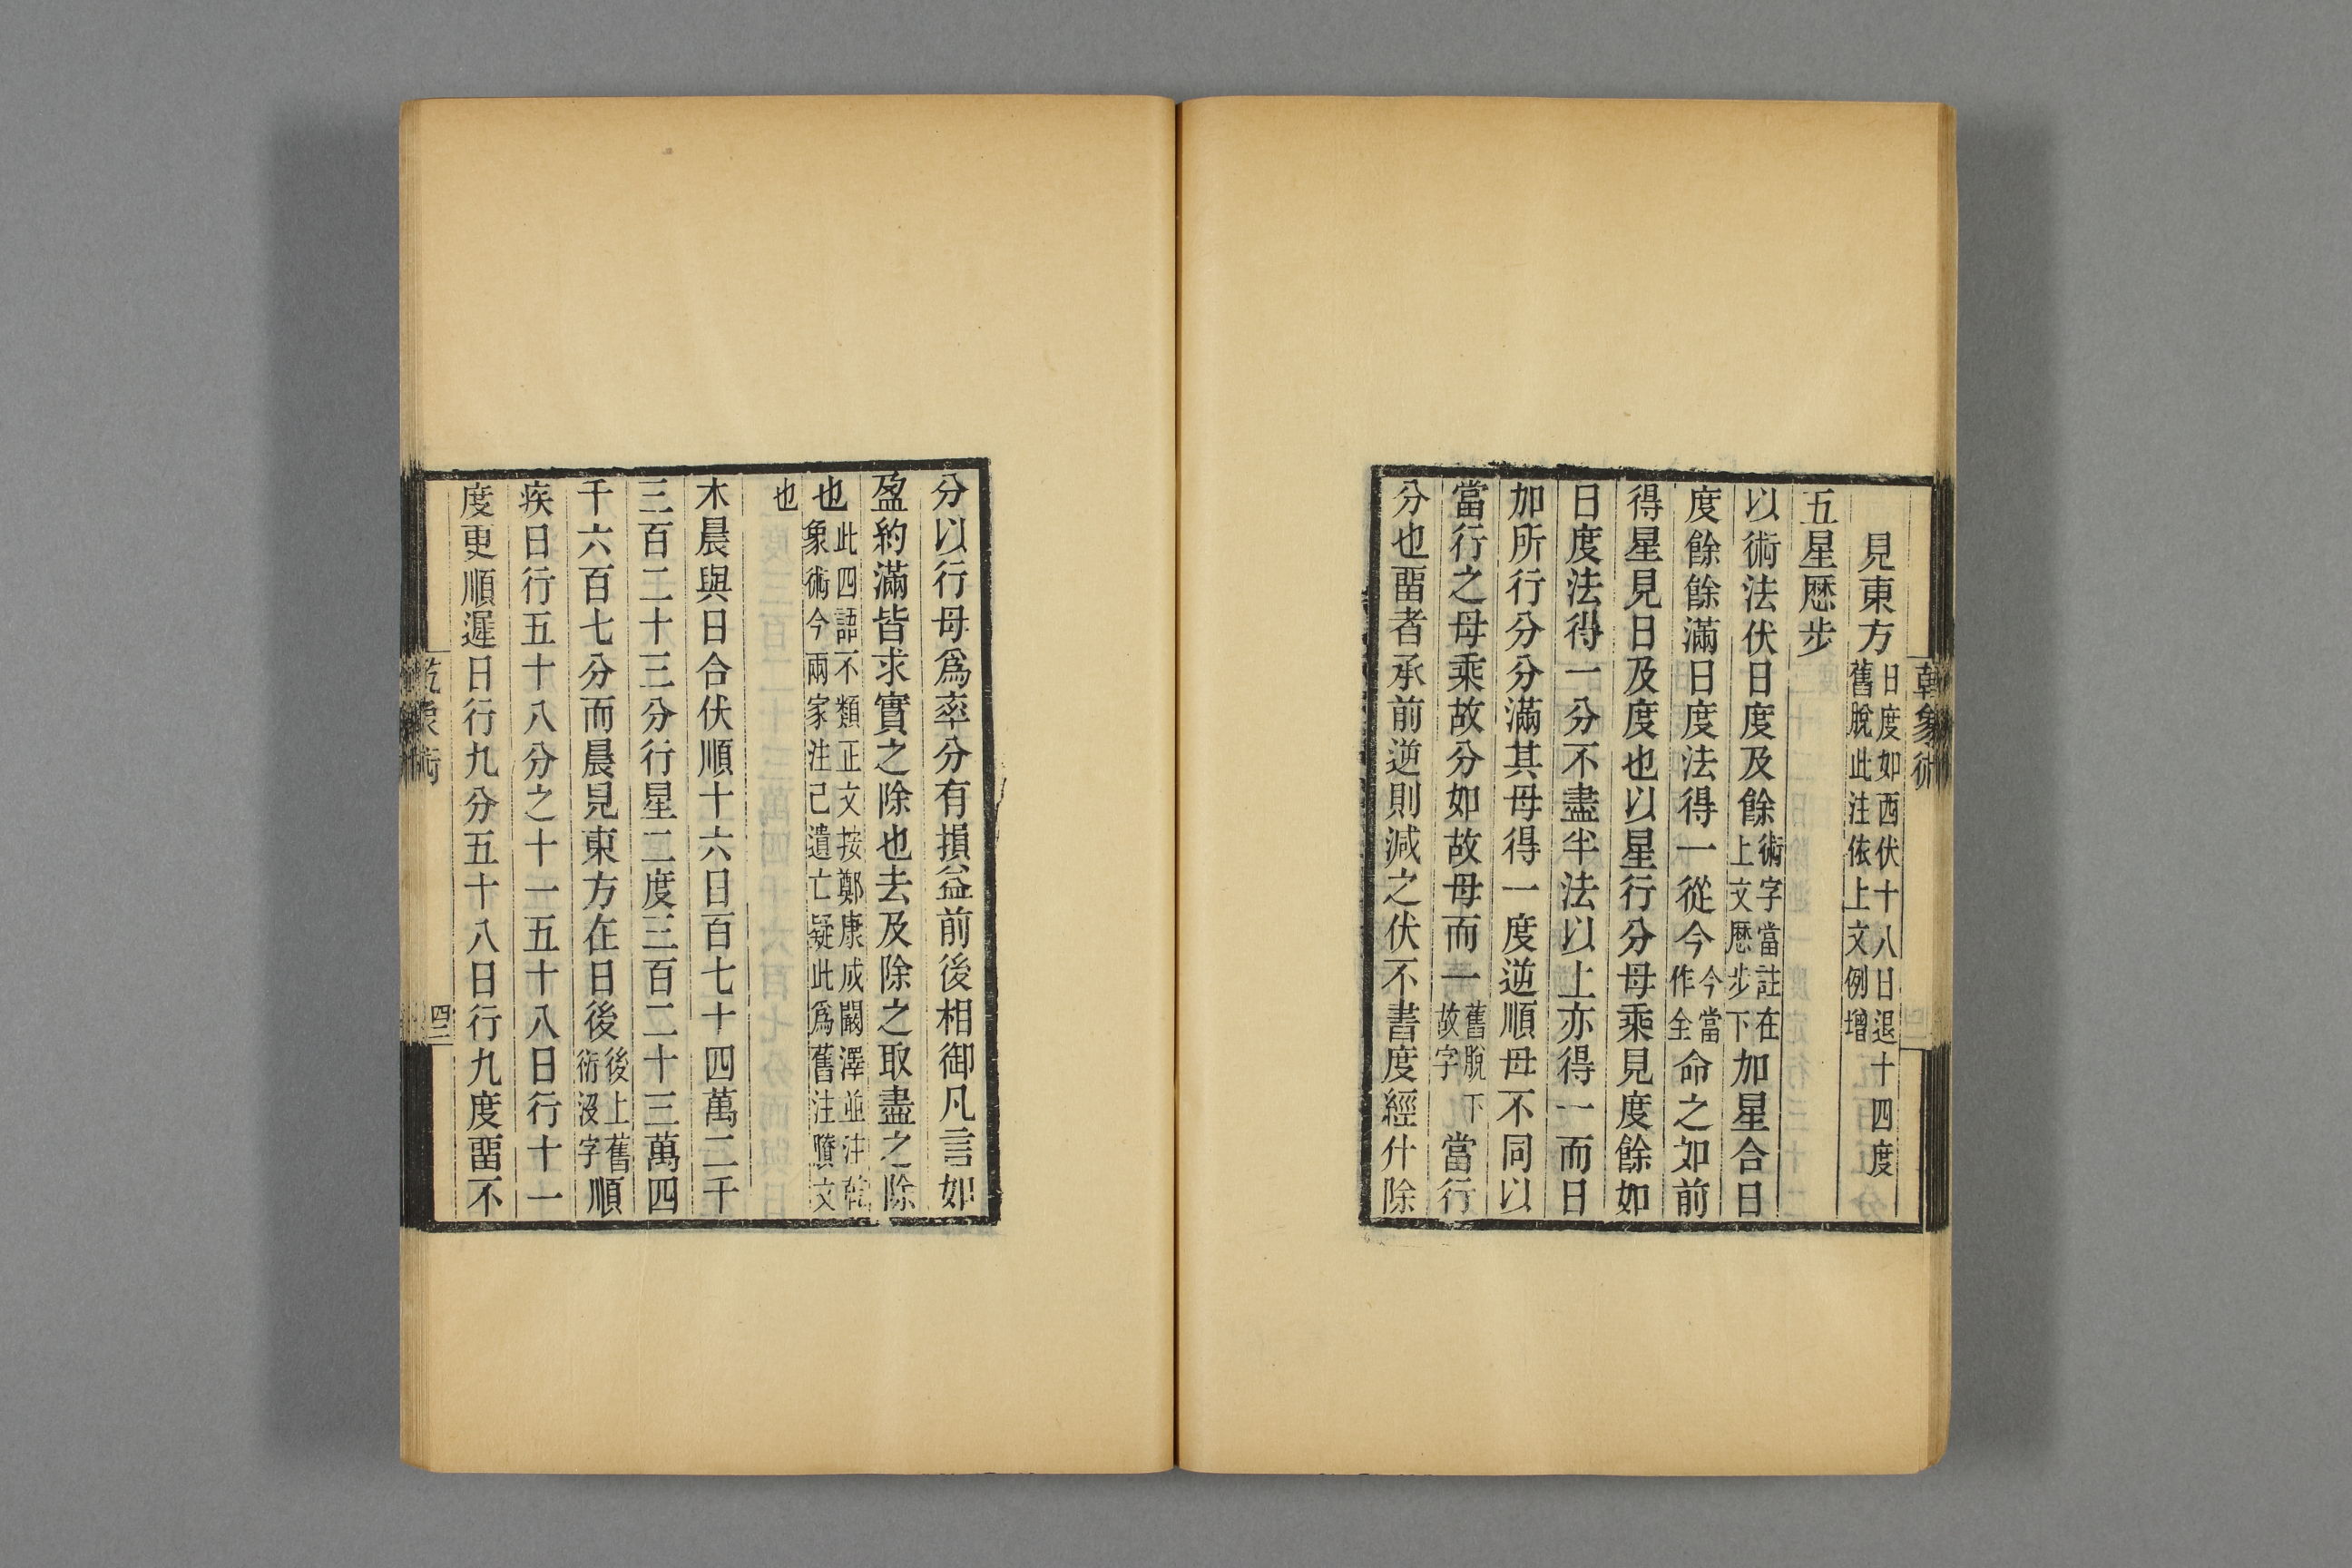 乾象術
見東方日度如西伏十八日退十四度舊脫此注依上文例增
五星厯步
以術法伏日度及餘術字當註在上文厯步下加星合日
度餘餘滿日度法得一從今今當作全命之如前
得星見日及度也以星行分母乘見度餘如
日度法得一分不盡半法以上亦得一而日
加所行分分滿其母得一度逆順母不同以
當行之母乘故分如故母而一舊脫下故字當行
分也畱者承前逆則減之伏不書度經什除
分以行母爲率分有損益前後相御凡言如
盈約滿皆求實之除也去及除之取盡之除
也此四語不類正文按鄭康成闞澤並注乾象術今兩家注已遺亡疑此爲舊注贋文
也
木晨與日合伏順十六日百七十四萬二千
三百二十三分行星二度三百二十三萬四
千六百七分而晨見東方在日後後上舊衍没字順
疾日行五十八分之十一五十八日行十一
度更順遲日行九分五十八日行九度畱不
乾象術
四二